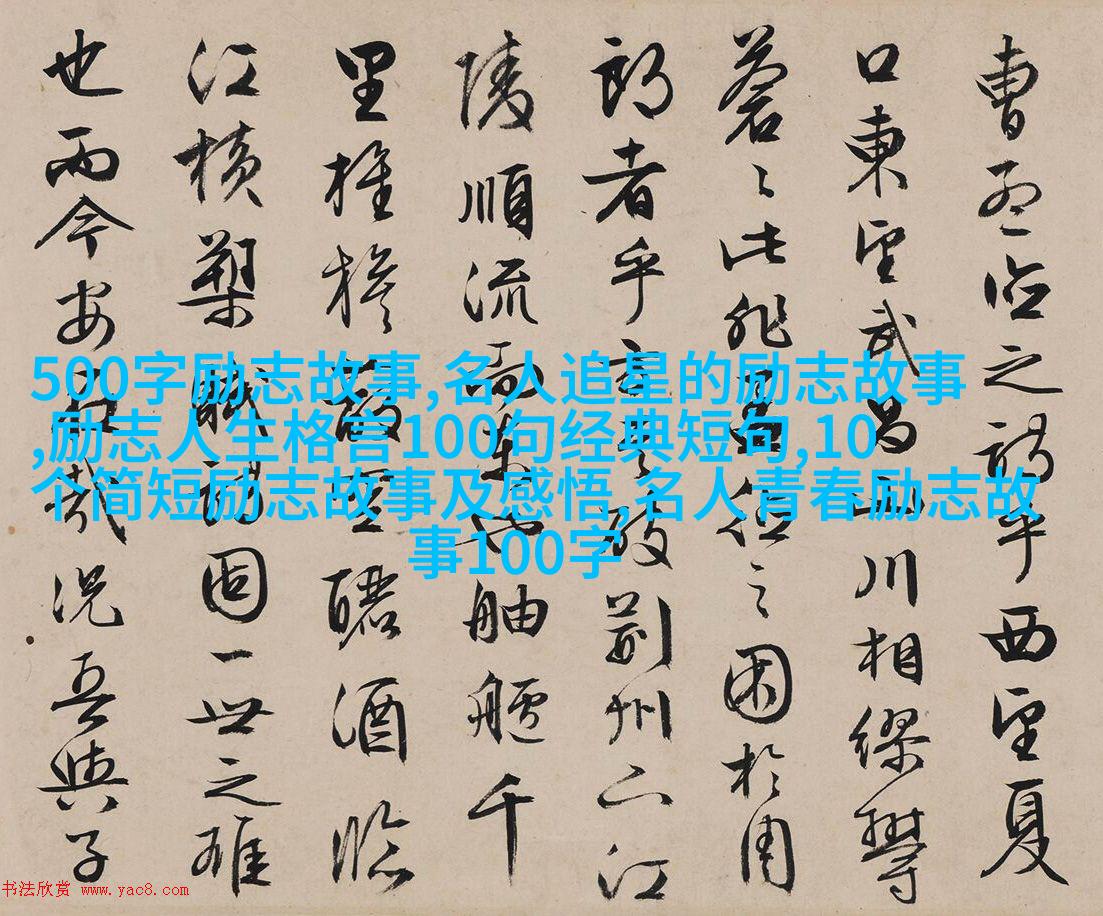 曹孟德之詩乎西望夏
口東望武昌山川相繆鬱
蒼々此非孟德之困於周
郎者乎方其破荆州下江
陵順流而東也舳艫千
里旌旗蔽空釃酒臨
江橫槊賦詩固一世之雄
也而今安在哉況吾與子
500字励志故事,名人追星的励志故事
,励志人生格言100句经典短句,10
个简短励志故事及感悟,名人青春励志故
事100字
书法欣赏 www.yac8.com